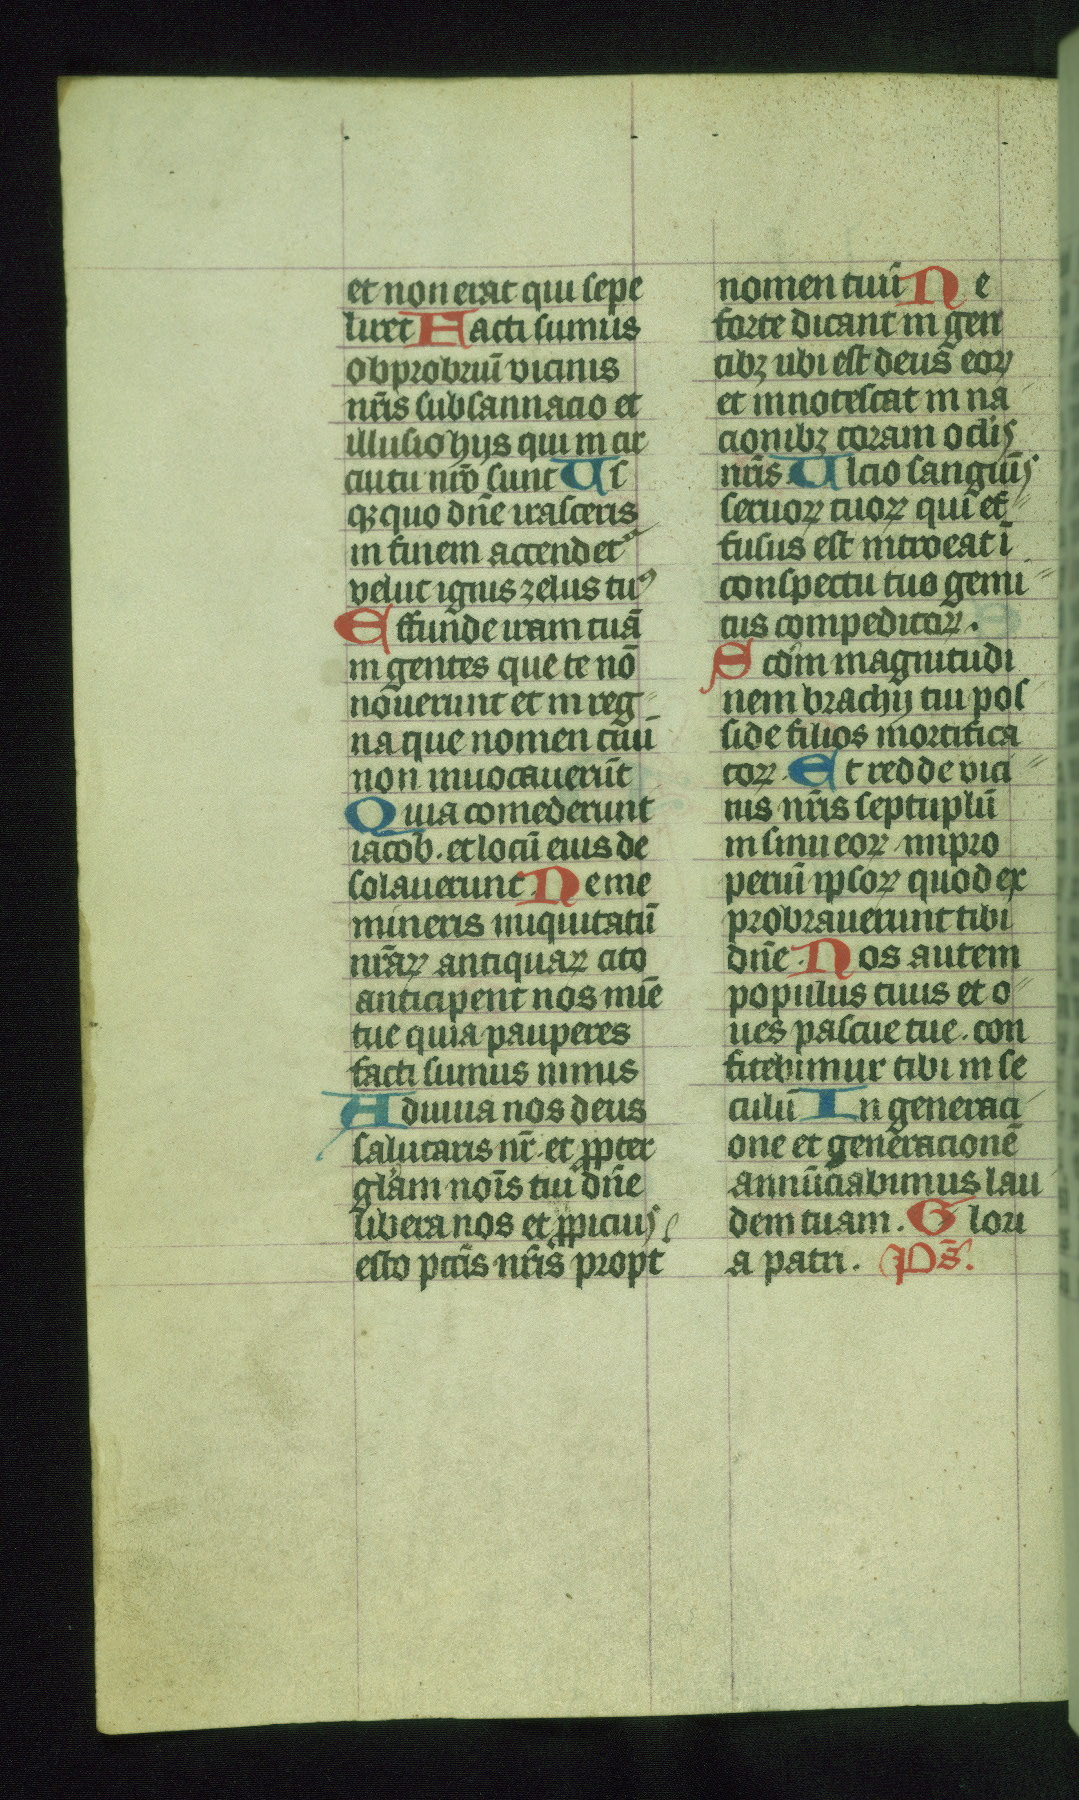 et non erat qui sepe
liret Facti sumus
obprobriū vicinis
nr̄is subsannacio et
illusio hijs qui in cir
cuitu nr̄o sunt Us
qꝫ quo dn̄e irasceris
in finem accendet᷑
velut ignis zelus tuꝰ
Effunde iram tuā
in gentes que te nō
nouerunt et in reg
na que nomen tuū
non inuocauerūt
Quia comederunt
iacob. et locū eius de
solauerunt Ne me
mineris iniquitatū
nr̄aꝝ antiquaꝝ cito
anticipent nos mīe
tue quia pauperes
facti sumus nimis
Adiuua nos deus
salutaris nr̄. et ꝓpter
glām noīs tui dn̄e
libera nos et ꝓpicius
esto pctīs nr̄is propt
nomen tuū Ne
forte dicant in gen
tibꝫ ubi est deus eoꝝ
et innotescat in na
cionibꝫ coram oclīs
nr̄is. Ulcio sanguīs
seruoꝝ tuoꝝ qui ef
fusus est introeat ī
conspectu tuo gemi
tus compeditoꝝ.
Scdm̄ magnitudi
nem brachij tui pos
side filios mortifica
toꝝ. Et redde vici
nis nr̄is septuplū
in sinu eoꝝ inpro
periū ipsoꝝ quod ex
probrauerunt tibi
dn̄e. Nos autem
populus tuus et o
ues pascue tue. con
fitebimur tibi in se
culū In generaci
one et generacionē
annūciabimus lau
dem tuam. Glori
a patri. Ps̄.